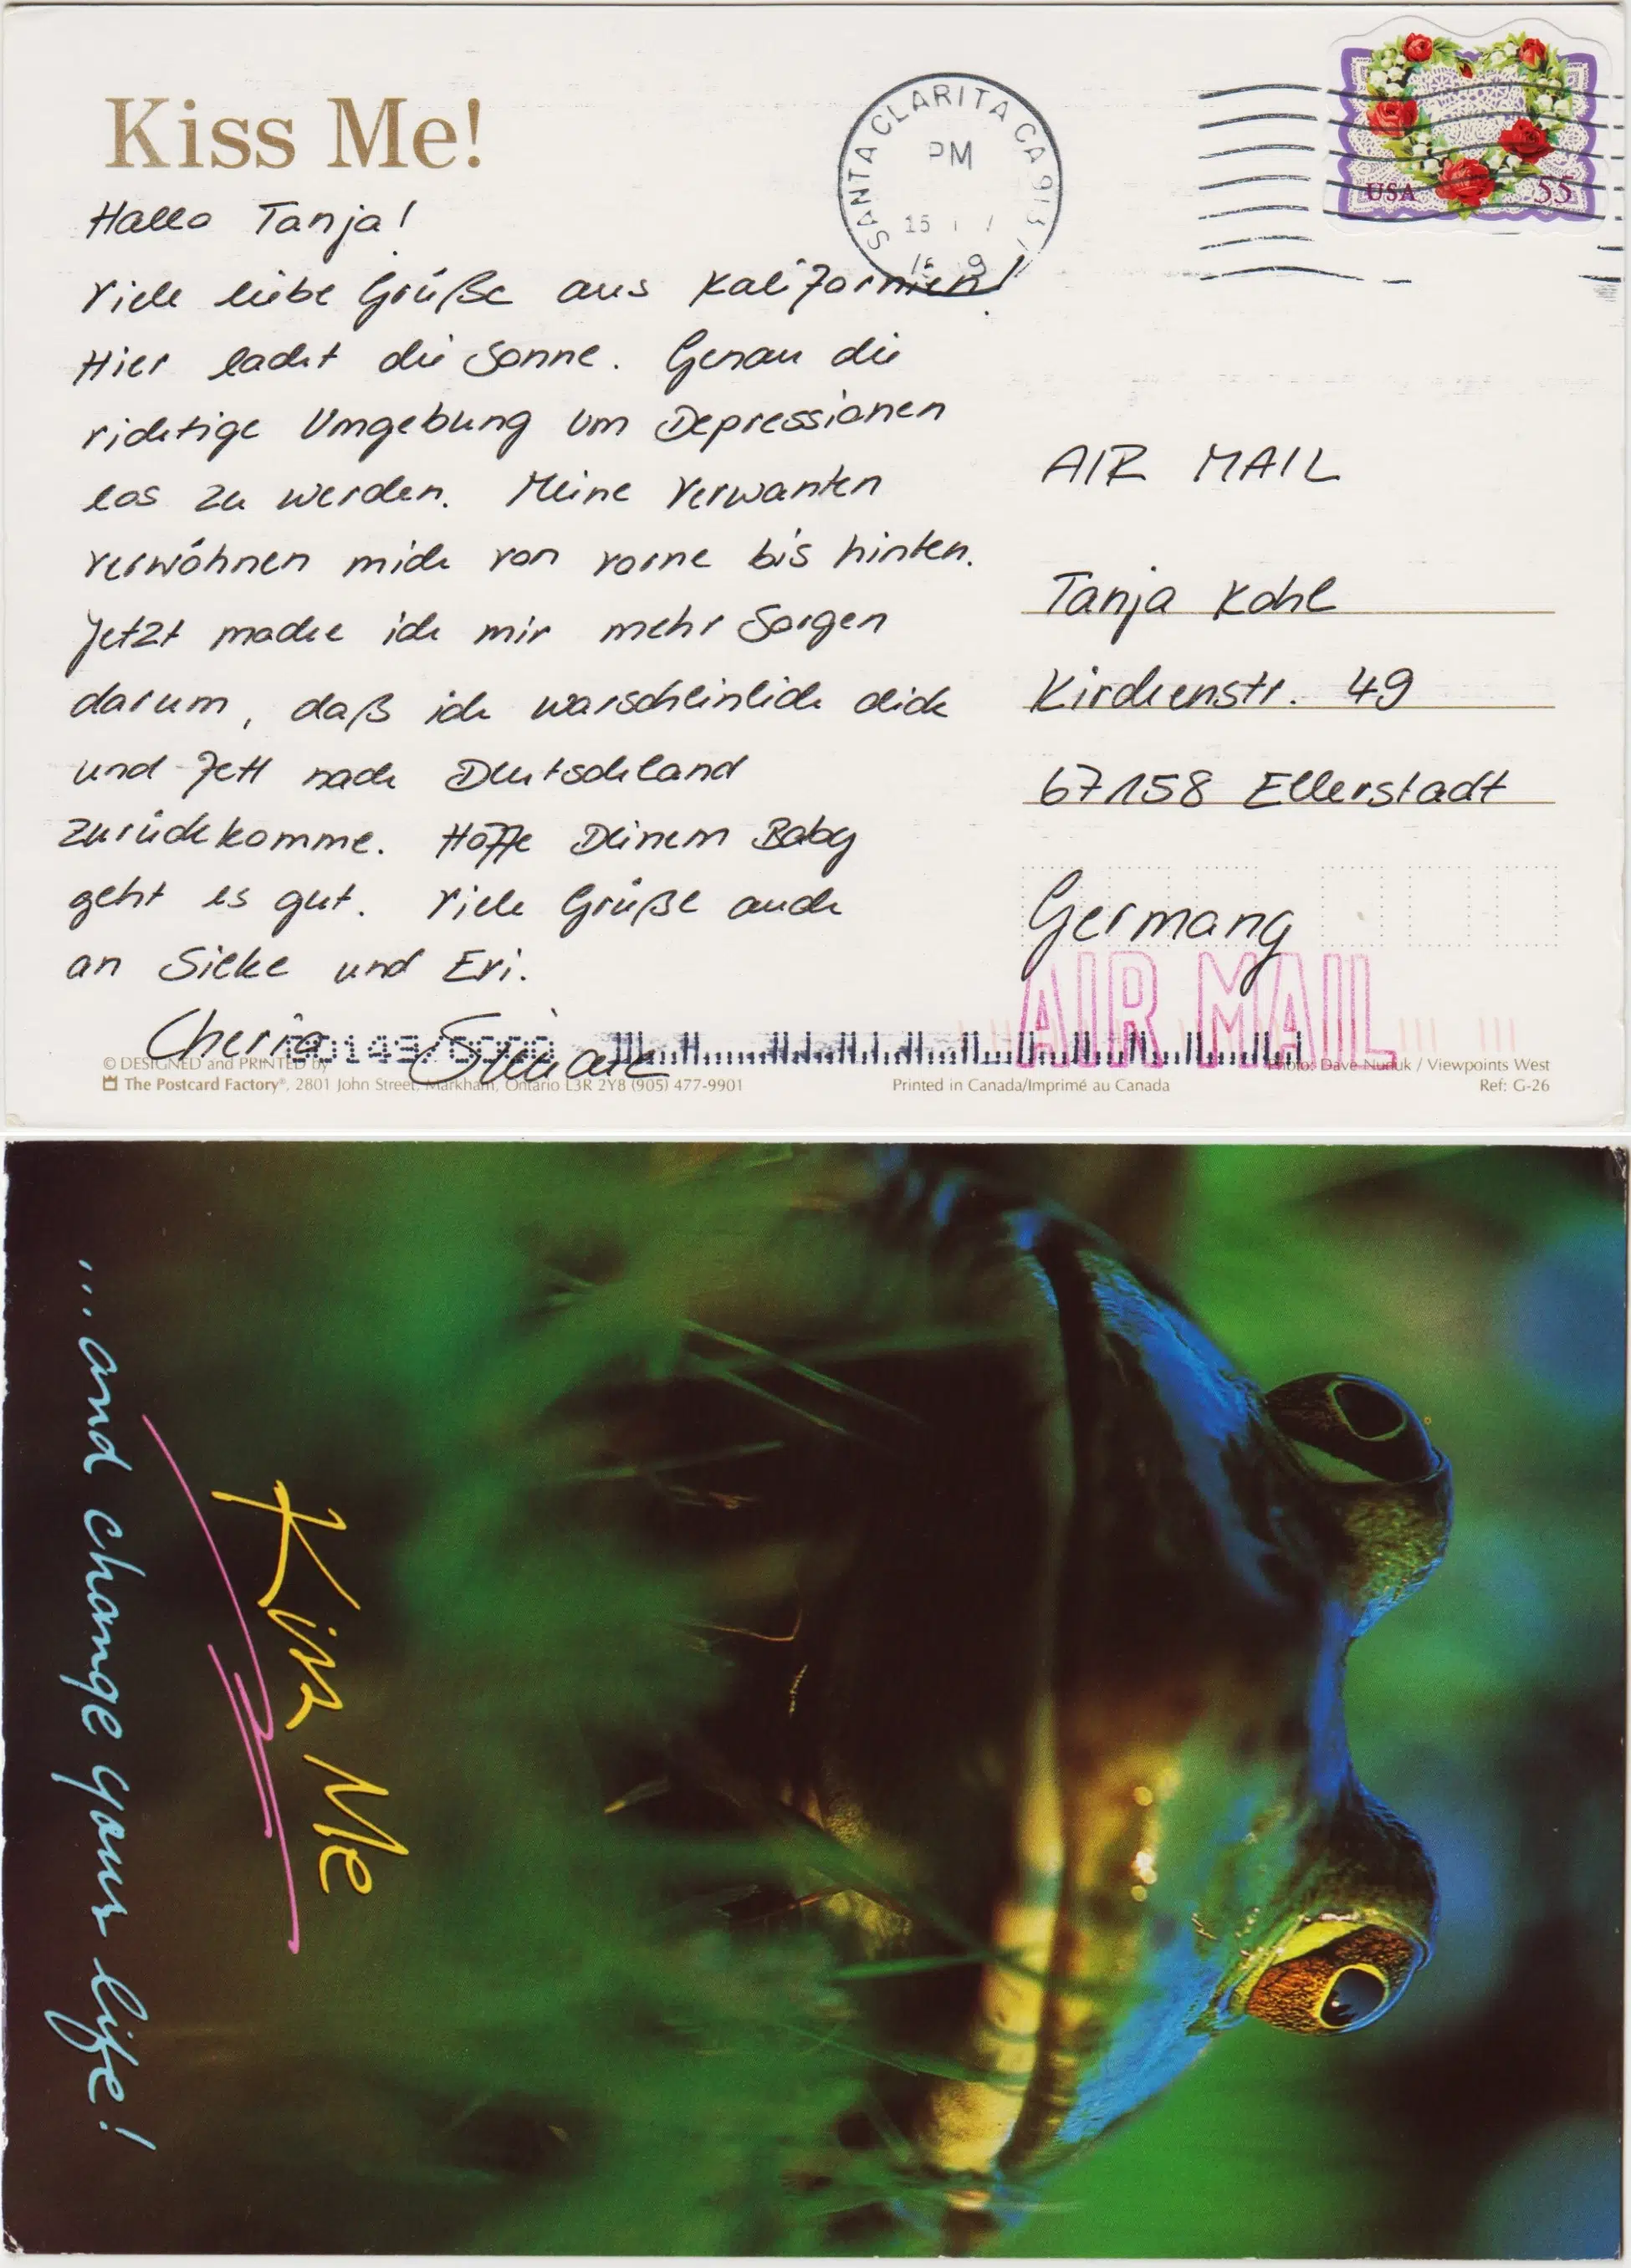 Kiss Me!
Hallo Tanja!
Viele liebe Grüße aus Kalifornien!
Hier lacht die Sonne. Genau die
richtige Umgebung um Depressionen
los zu werden. Meine Verwanten
verwöhnen mich von vorne bis hinten.
Jetzt mache ich mir mehr Sorgen
darum, daß ich warscheinlich dick
und fett nach Deutschland
zurückkomme. Hoffe Deinem Baby
geht es gut. Viele Grüße auch
an Silke und Evi.
SANTA CLARITA CA 913
PM
15
USA 55
AIR MAIL
Tanja Kohl
Kirchenstr. 49
67158 Ellerstadt
Germany
AIR MAIL
© DESIGNED and PRINTED by
The Postcard Factory®, 2801 John Street, Markham, Ontario L3R 2Y8 (905) 477-9901
Printed in Canada/Imprimé au Canada
Photo: Dave / Viewpoints West
Ref: G-26
Kiss Me
...and change your life!